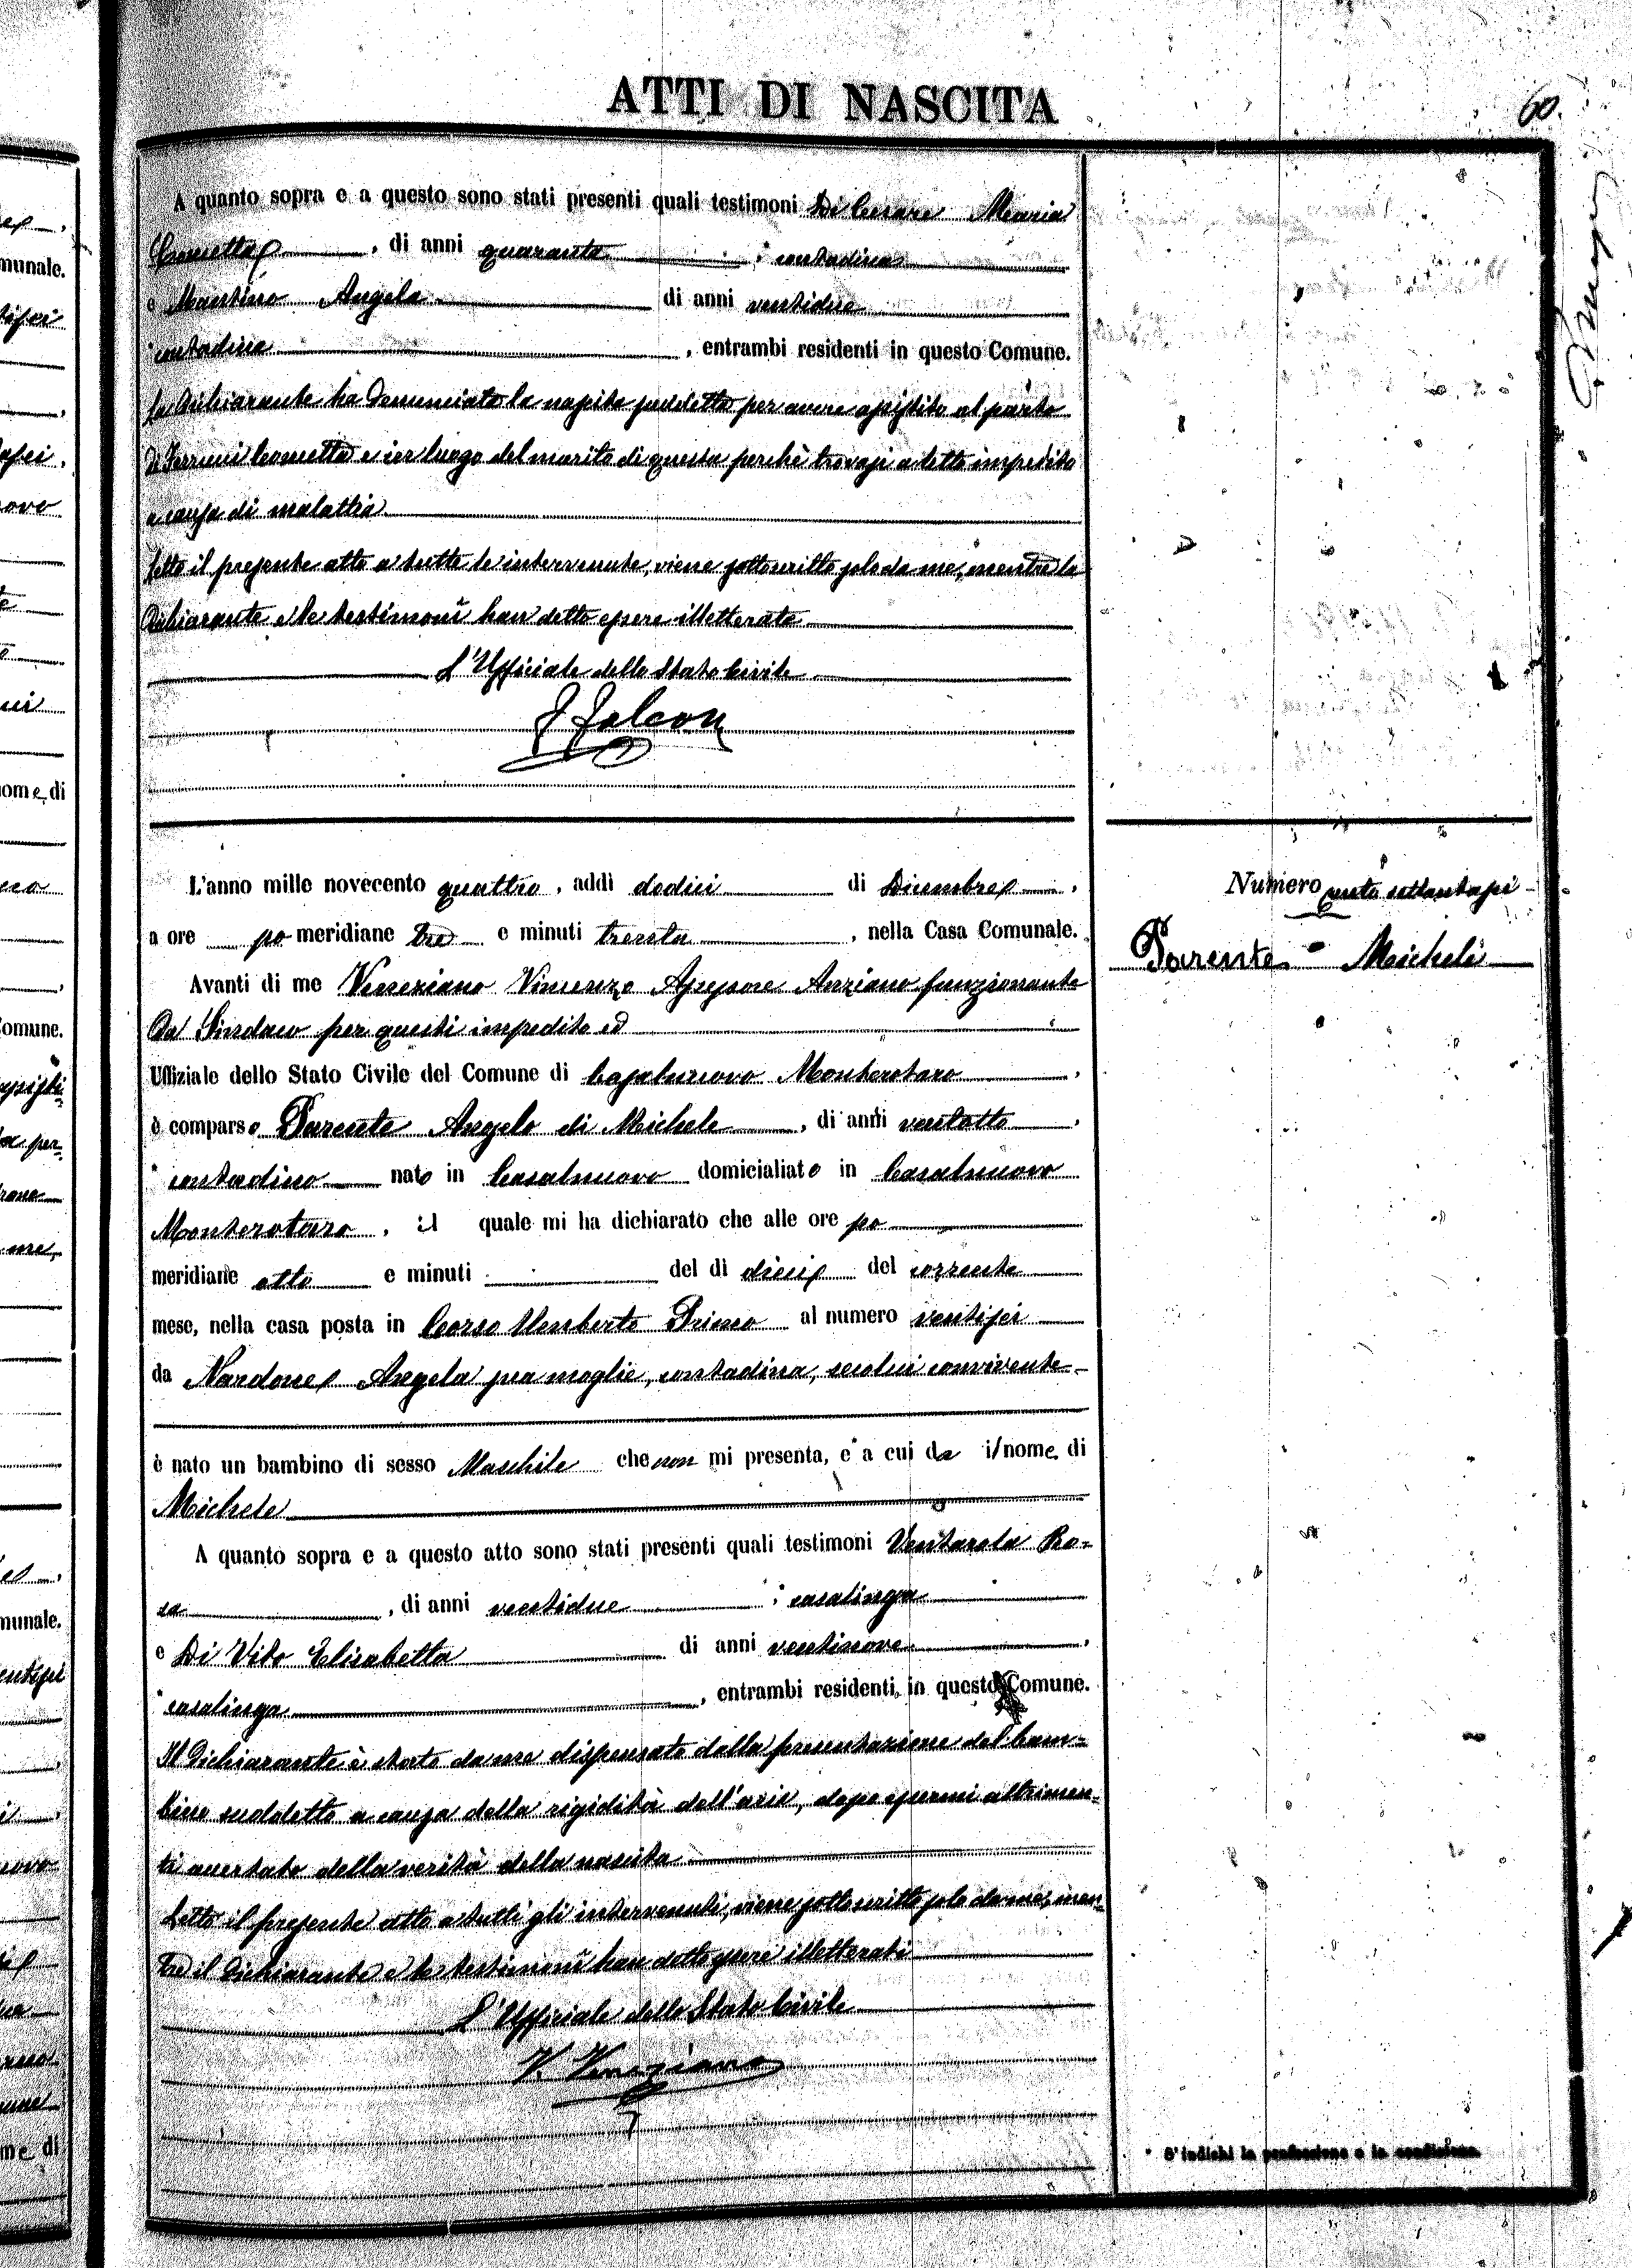 ATTI DI NASCITA
60.
A quanto sopra e a questo sono stati presenti quali testimoni Di Cesare Maria
Concetta, di anni quaranta, contadina
e Mastino Angela di anni ventidue
contadina, entrambi residenti in questo Comune.
La dichiarante ha denunciato la nascita suddetta per avere assistito al parto
di Ferrucci Concetta e in luogo del marito di questa perchè trovasi a letto impedito
a causa di malattia
Letto il presente atto a tutte le intervenute, viene sottoscritto solo da me, mentre la
dichiarante e le testimoni han detto essere illetterate
L'Ufficiale dello Stato Civile
F Falcon
L'anno mille novecento quattro, addì dodici di Dicembre,
a ore po meridiane tre e minuti trenta, nella Casa Comunale.
Avanti di me Veneziano Vincenzo Assessore Anziano funzionante
da Sindaco per questi impedito ed
Uffiziale dello Stato Civile del Comune di Casalnuovo Monterotaro,
è comparso Parente Angelo di Michele, di anni ventotto,
contadino nato in Casalnuovo domicialiato in Casalnuovo
Monterotaro, il quale mi ha dichiarato che alle ore po
meridiane otto e minuti del dì dieci del corrente
mese, nella casa posta in Corso Umberto Primo al numero ventisei
da Nardone Angela sua moglie, contadina, secolui convivente
è nato un bambino di sesso Maschile che non mi presenta, e a cui da il nome di
Michele
A quanto sopra e a questo atto sono stati presenti quali testimoni Ventarola Ro-
sa, di anni ventidue, casalinga
e Di Vito Elisabetta di anni ventinove,
casalinga, entrambi residenti in questo Comune.
Il dichiarante è stato da me dispensato dalla presentazione del bam=
bino suddetto a causa della rigidità dell'aria, dopo essermi altrimen=
ti accertato della verità della nascita
Letto il presente atto a tutti gli intervenuti, viene sottoscritto solo da me, men=
tre il dichiarante e le testimoni han detto essere illetterati
L'Ufficiale dello Stato Civile
V. Veneziano
Numero cento settantasei
Parente = Michele
* S'indichi la professione o la condizione.